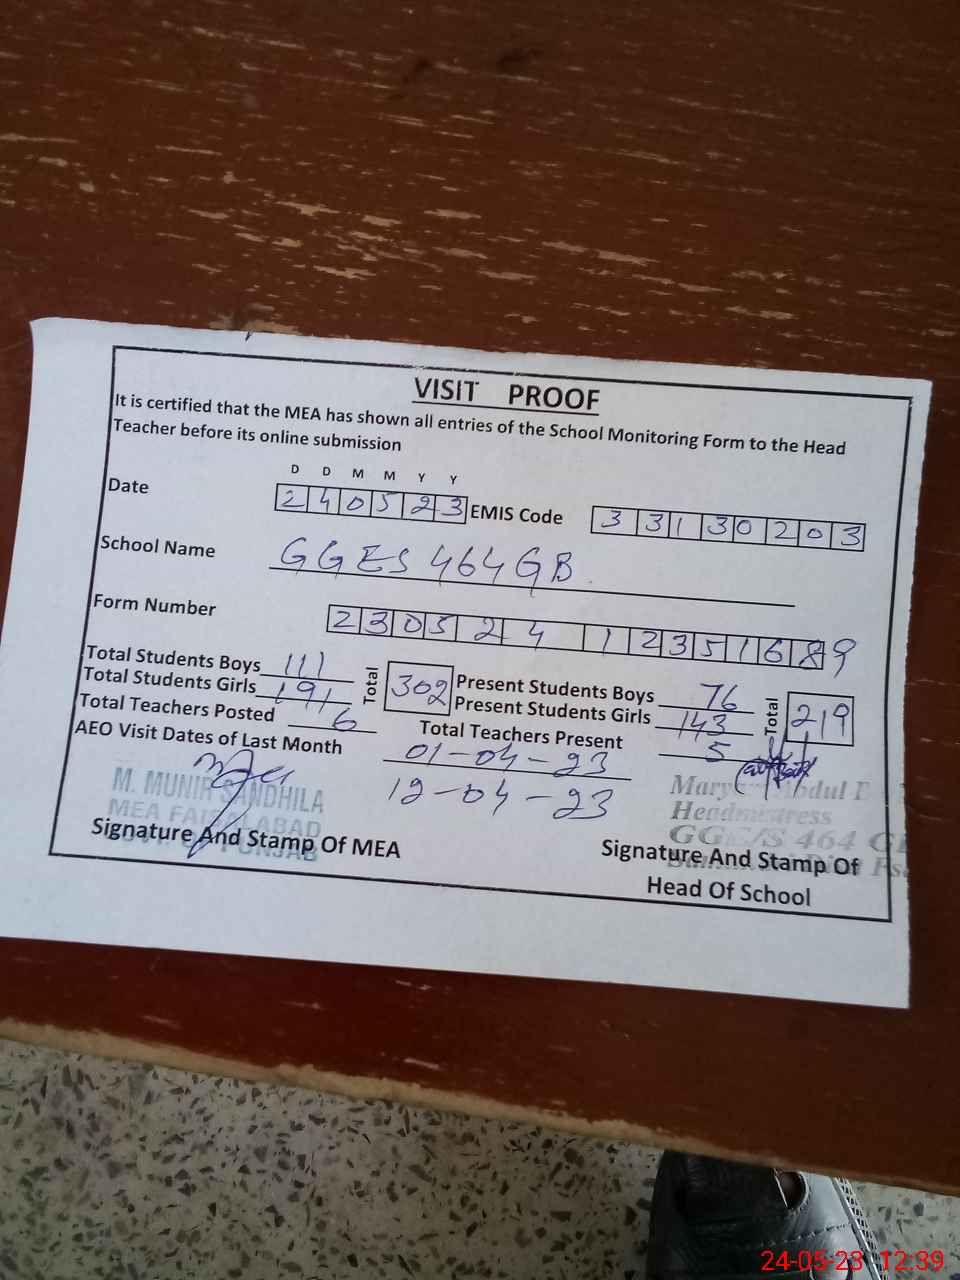 VISIT PROOF
It is certified that the MEA has shown all entries of the School Monitoring Form to the Head
Teacher before its online submission
D D M M Y Y
Date 240523 EMIS Code 33130203
School Name GGES 464 GB
Form Number 2305241235168 9
Total Students Boys 111 Total 302 Present Students Boys 76 Total 219
Total Students Girls 191 Present Students Girls 143
Total Teachers Posted 6 Total Teachers Present 5
AEO Visit Dates of Last Month 01-04-23
12-04-23
M. MUNIR SANDHILA
MEA FAISALABAD
PUNJAB
Signature And Stamp Of MEA
Abdul
Headmistress
464
Signature And Stamp Of
Head Of School
24-05-23 12.39